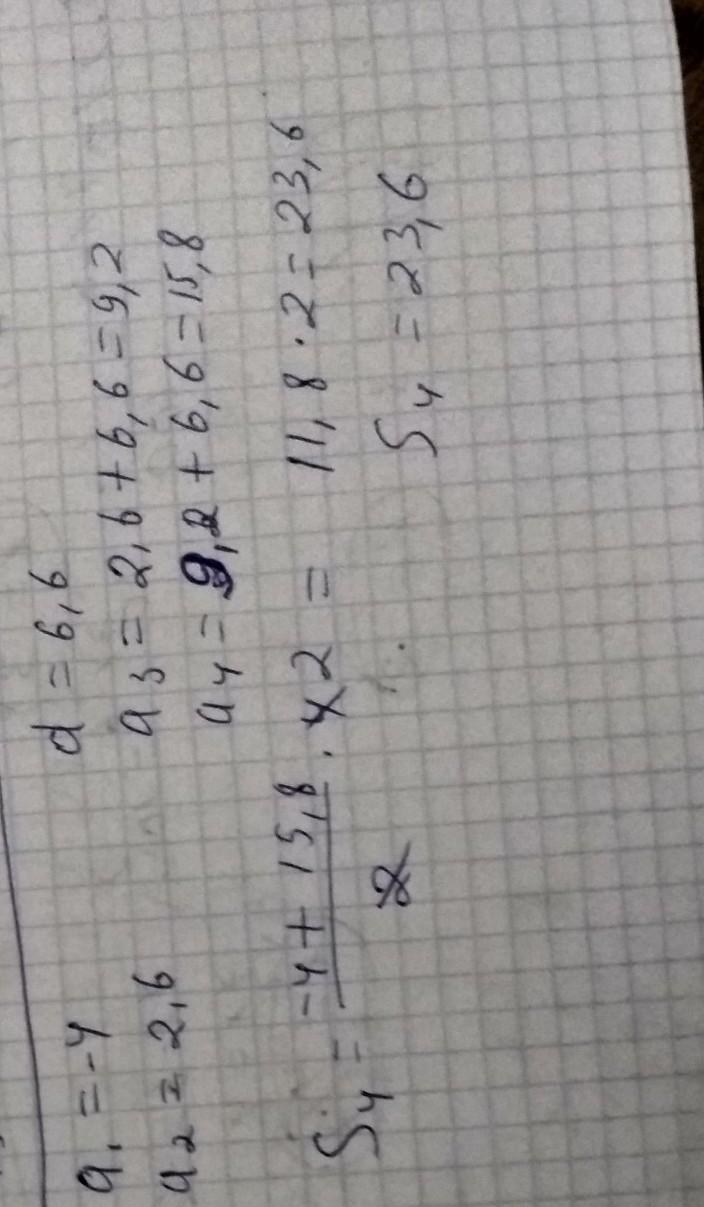 a₁ = -4 d = 6,6
a₂ = 2,6 a₃ = 2,6 + 6,6 = 9,2
a₄ = 9,2 + 6,6 = 15,8
S₄ = (-4 + 15,8)/2 · 4 2 = 11,8 · 2 = 23,6
S₄ = 23,6